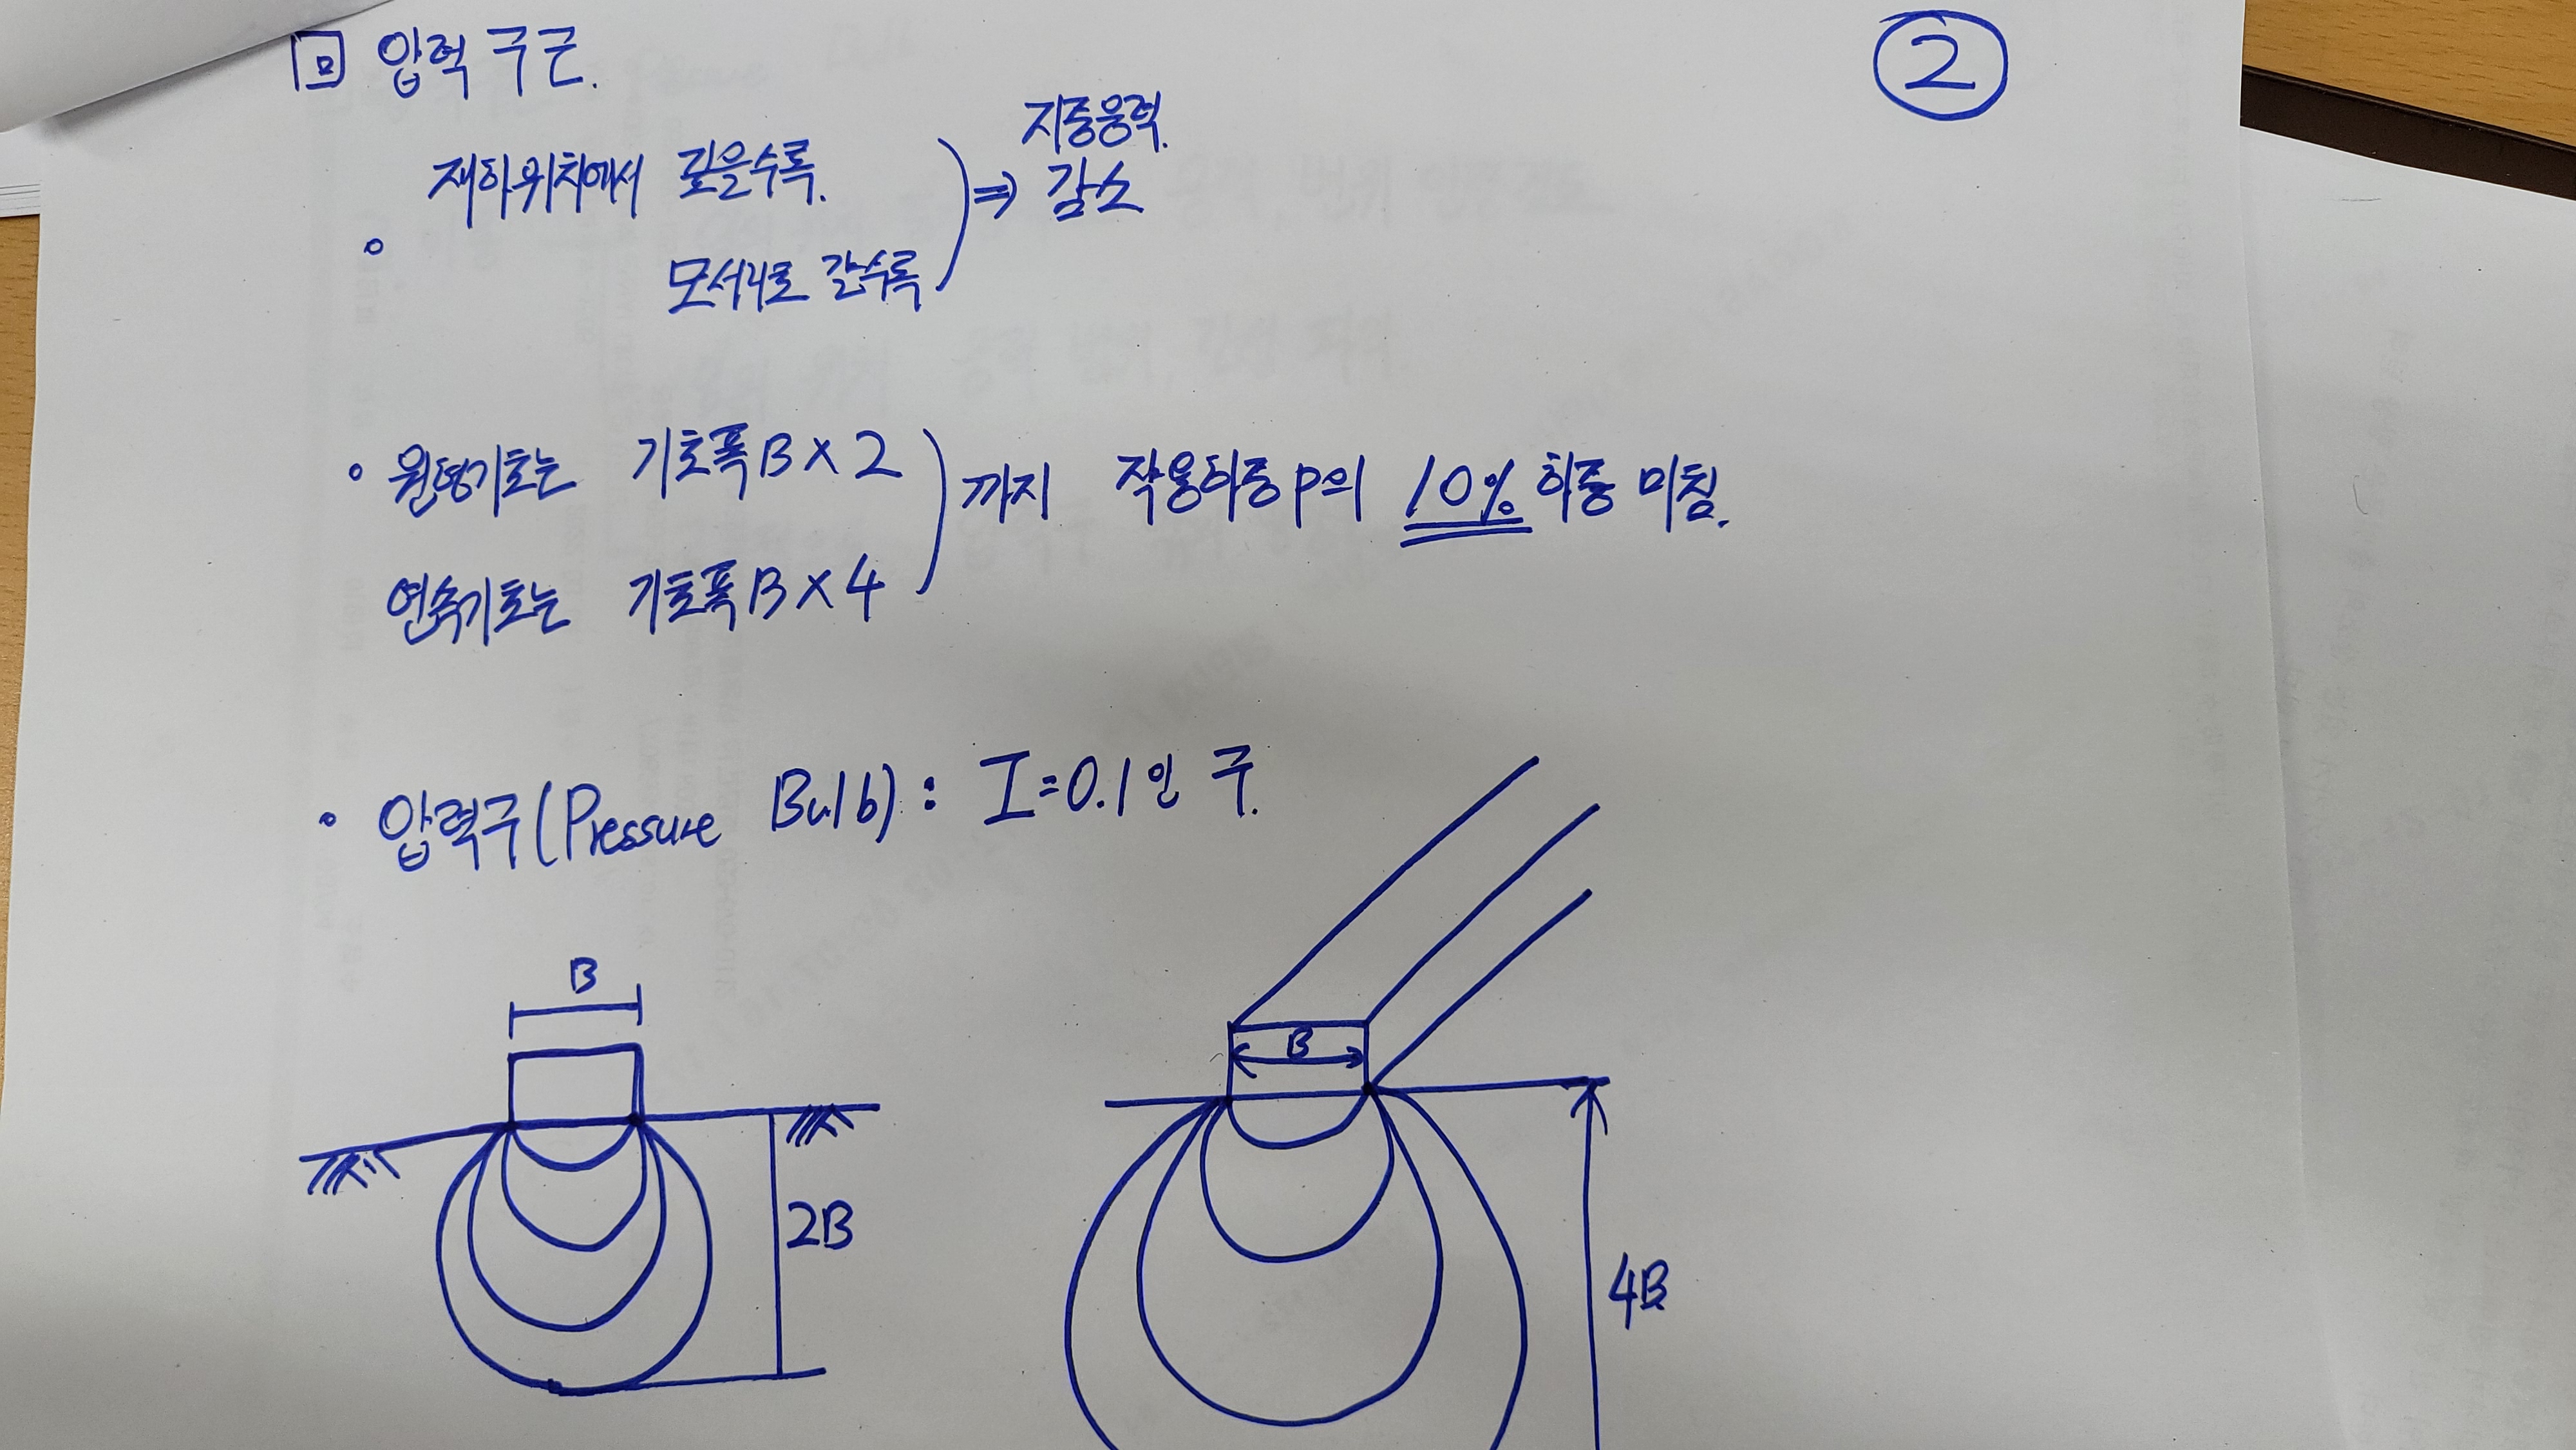 回 압력 구근.
②
재하위치에서 깊을수록.
모서리로 갈수록
⇒ 지중응력.
감소
◦ 원형기초는 기초폭 B×2
연속기초는 기초폭 B×4
까지 작용하중 P의 10% 하중 미침.
◦ 압력구(Pressure Bulb): I=0.1인 구.
B
B
2B
4B